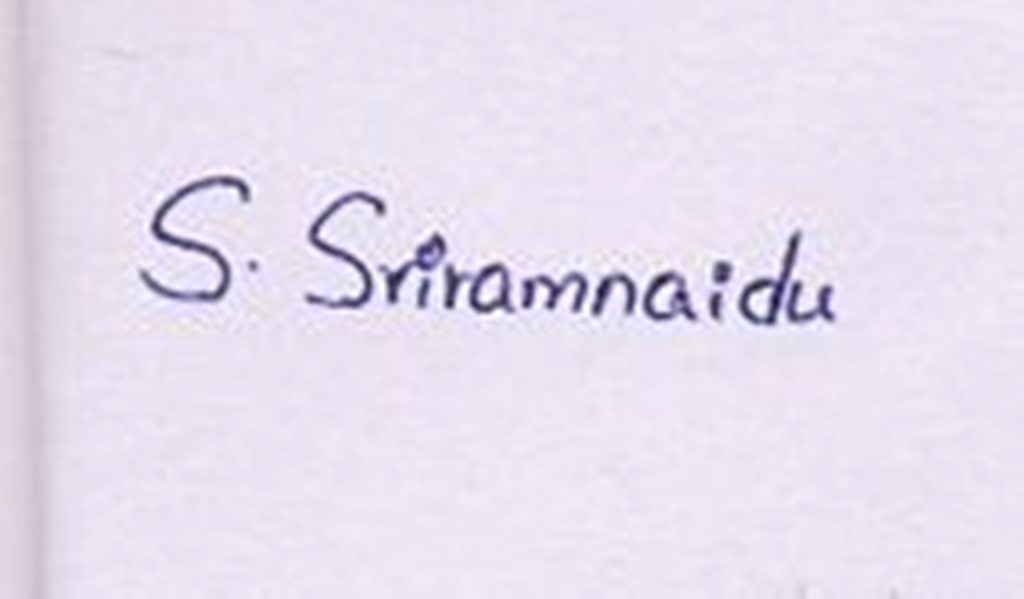 S. Sriramnaidu